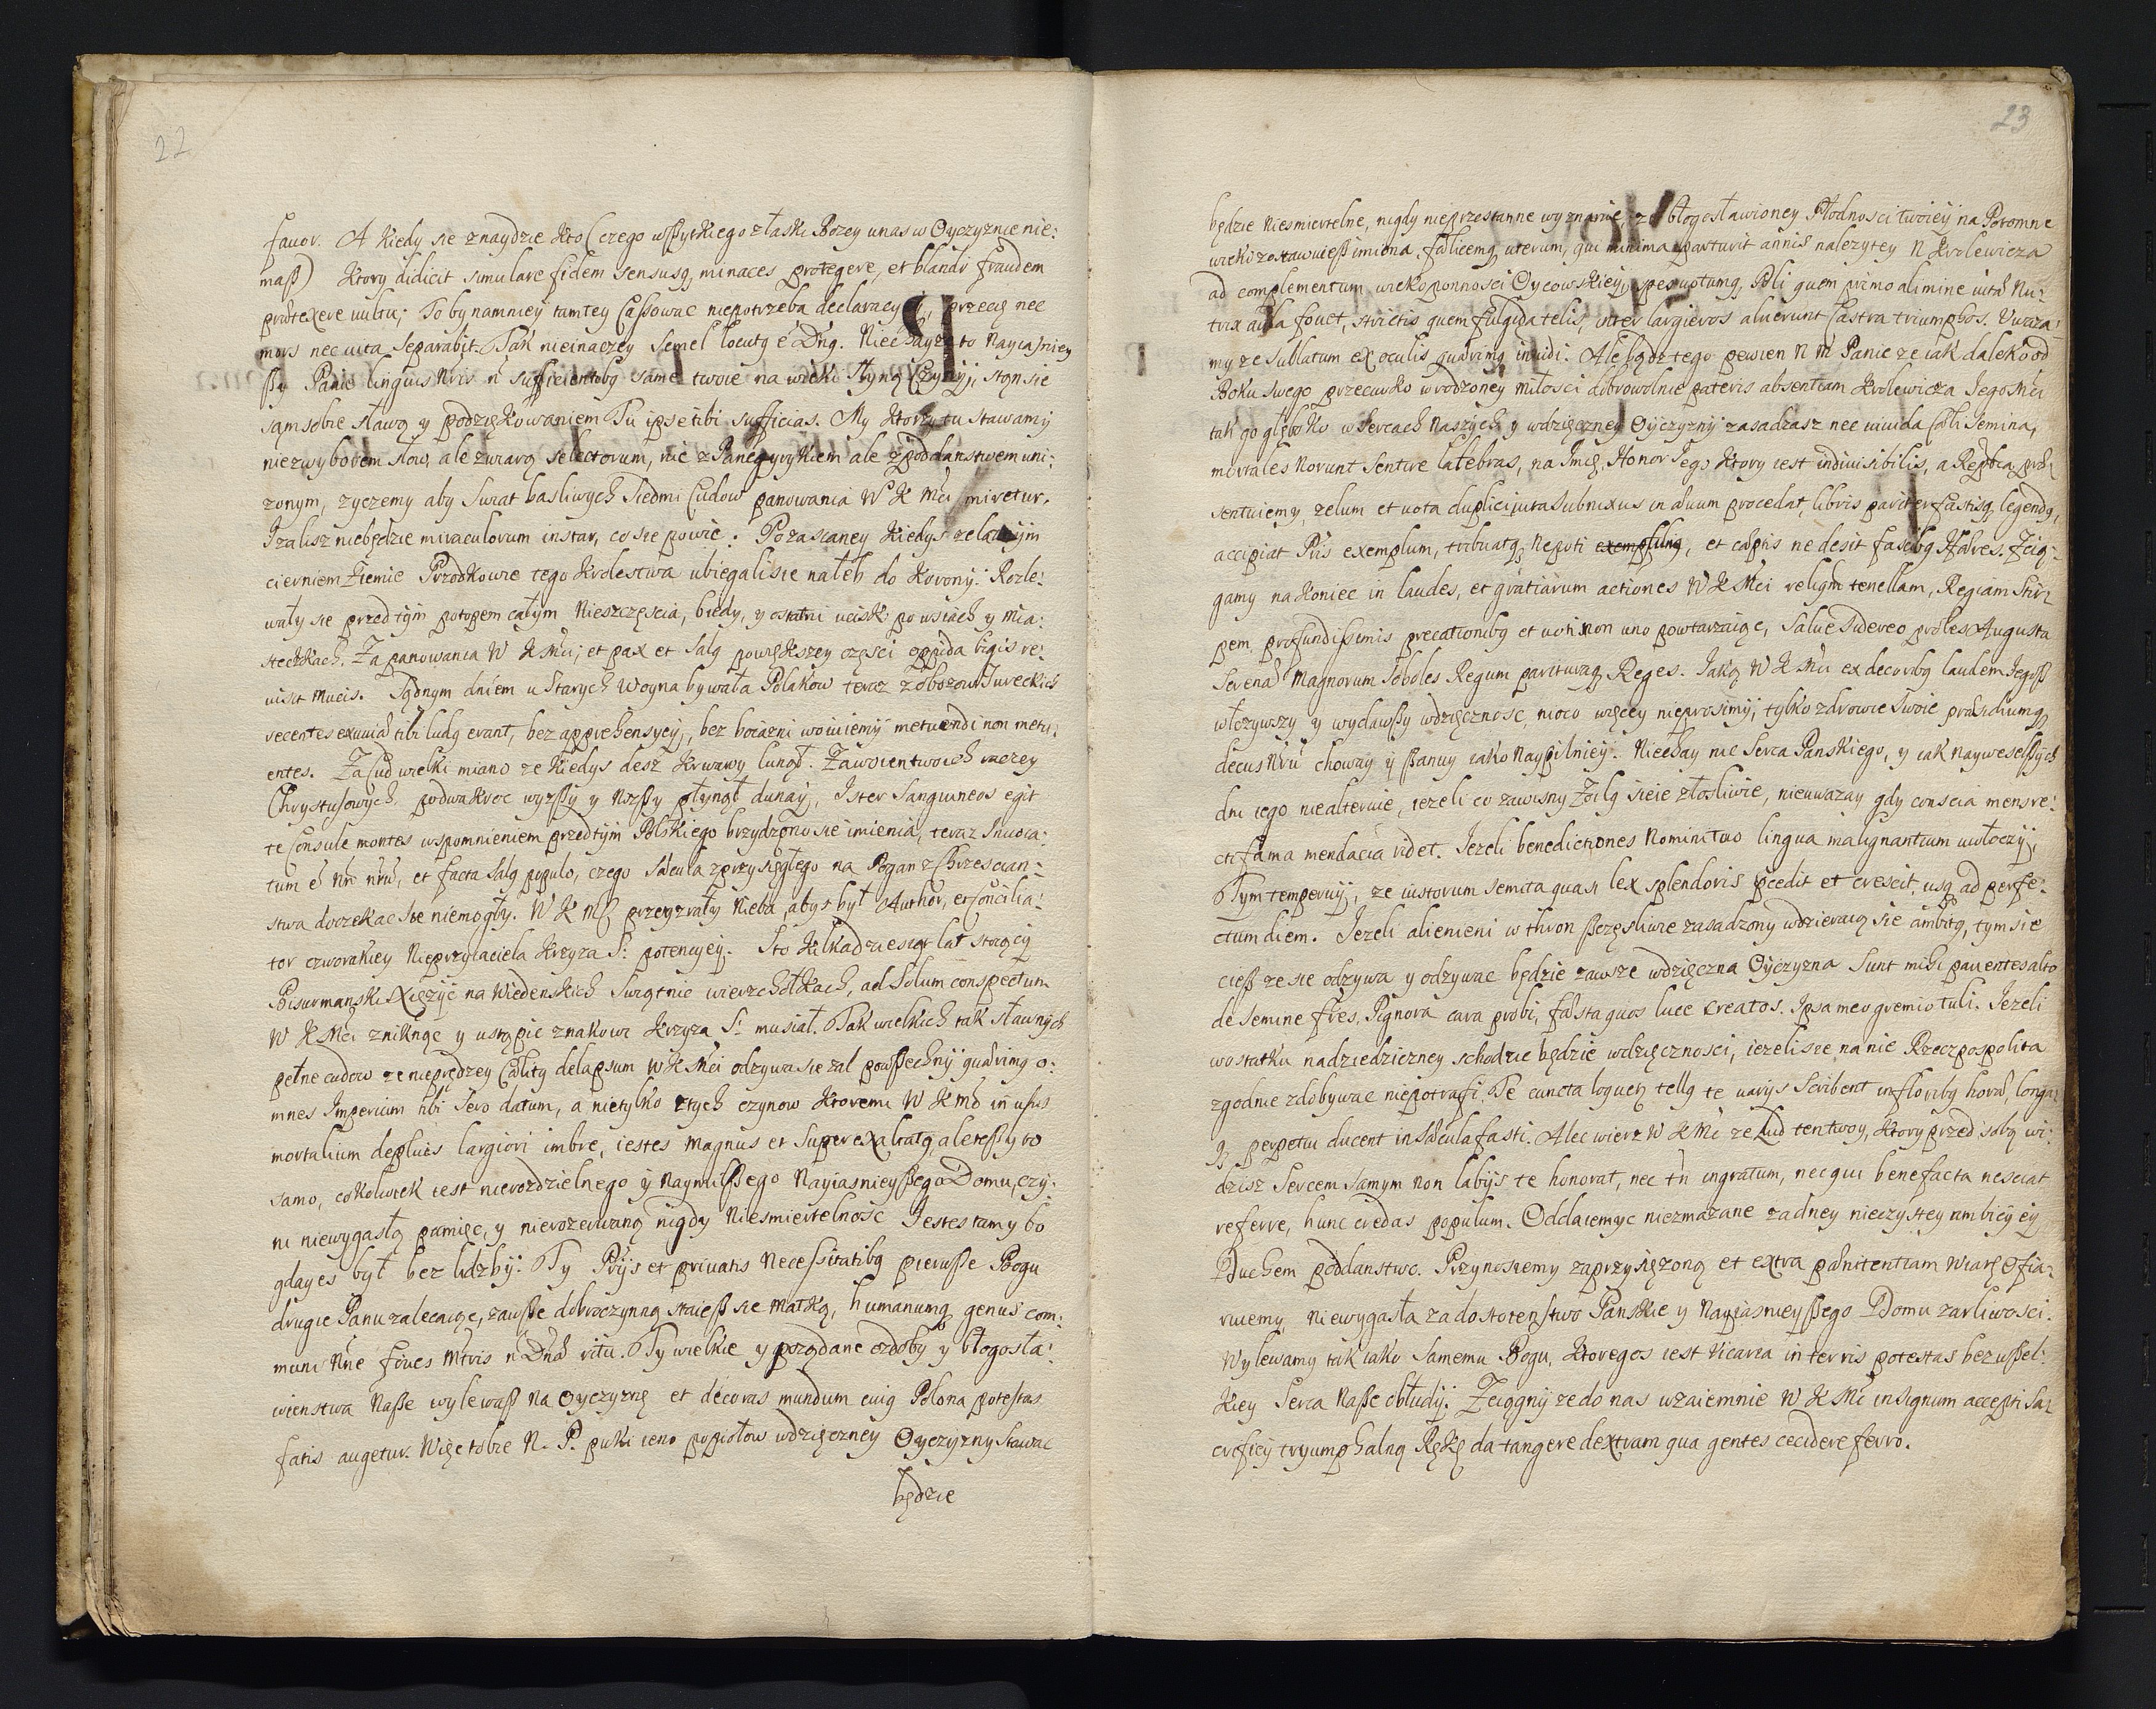 22
favor. A kiedy sie znaydzie kto (czego wszytkiego z łaski Bozey u nas w Oyczyznie nie:
masz) ktory didicit simulare fidem sensusq minaces protegere, et blandi fraudem
prætexere vultu; To bynamniey tamtey Cassowac niepotrzeba declaracyi, przecię nec
mors nec vita separabit. Tak nieinaczey Semel locutq é Dñq. Niechayze to Nayiasniey
szy Panie linguis Nris ñ sufficientibq same twoie na wieki słyną Czyny, stąn sie
sąm sobie sławą y podziękowaniem Tu ipse tibi sufficias. My ktorzy tu stawamy
nie z wyborem słow, ale z wiarą selectorum, nie z Panegyrykiem ale z poddanstwem uni:
zonym, zyczemy aby swiat basliwych siedmi Cudow panowania W K Mći miretur.
Izalisz niebędzie miraculorum instar, co sie powie: Pozascaney kiedys zelaznym
cierniem ziemie Przodkowie tego krolestwa ubiegali sie na łeb do korony: Rozle:
wały sie przed tym potopem całym nieszczęscia, biedy, y ostatni ucisk po wsiach y mia:
steczkach. Za panowania W K Mći; et pax et Salq powiększey częsci oppida bigis re:
visit mucis. Sądnym dniem u starych woyna bywała Polakow teraz z obozow Tureckich
recentes exuviæ tibi ludq erant, bez apprehensyey, bez boiazni woiuiemy metuendi non metu:
entes. Za Cud wielki miano ze kiedys desz krwawy lunął. Za woien twoich raczey
Chrystusowych, podwakroc wyzszy y nizszy płynął dunay, Ister sanguineos egit
te Consule montes wspomnieniem przed tym Polskiego brzydzono sie imienia, teraz Invoca:
tum é Nñ nrũ, et facta Salq populo, czego sæcula z przysięgłego na Pogan z Chrzescian:
stwa doczekac sie niemogły. W K Mć przeyzrały Nieba, abys był Author, et Concilia:
tor czworakiey Nieprzyiaciela krzyza S: potencyey. Sto kilkadziesiąt lat stoiący
Bisurmanski Xięzyc na Wiedenskich Swiątnic wierzchołkach, ad Solum conspectum
W K Mći zniknąc y ustąpic znakowi krzyza S: musiał. Tak wielkich tak sławnych
pełne cudow ze nieprędzey Cœlitq delapsum W K Mći odzywa sie zal powszechny quærimq o:
mnes Imperium tibi sero datum, a nietylko z tych czynow ktoremi W K Mć in usus
mortalium depluis largiori imbre, iestes magnus et Superexaltatq, ale teszy to
samo, cokolwiek iest nierozdzielnego y naymilszego Nayiasnieyszego Domu, czy:
ni niewygasłą pamięc, y nierozerwaną nigdy niesmiertelnosc Iestes tam y bo
gdayes był bez liczby: Ty Prijs et privatis necessitatibq pierwsze Bogu
drugie Panu zalecaiąc, zawsze dobroczynną staiesz sie Matką, humanumq genus com:
muni Nñe foves Mtris ñ Dñæ ritu. Ty wielkie y pożądane ozdoby y błogosła:
wienstwa Nasze wylewasz na Oyczyznę et decoras mundum cuiq Polona potestas
fatis augetur. Więc tobie N. P. puki ieno popiołow wdzięczney Oyczyzny stawac
będzie
23
będzie niesmiertelne, nigdy nieprzestanne wyznanie, ze błogosławioney Płodnosci twoiey na Potomne
wieki zostawuiesz imiona. fœlicemq uterum, qui minima parturit annis nalezytey N krolewicza
ad complementum wiekopomnosci Oycowskiey, spes votumq Poli quem primo a limine vitæ Nu:
trix aula fovet, strictis quem fulgida telis, inter largieros aluerunt Castra triumphos. Uwaza:
my ze sublatum ex oculis quærimq invidi. Ale bądz tego pewien N M Panie ze iak daleko od
Boku swego przeciwko wrodzoney miłosci dobrowolnie pateris absentiam krolewicza Iegomći
tak go głęboko w sercach naszych y wdzięczney Oyczyzny zasadzasz nec invida Cœli semina,
mortales norunt sentire latebras, na Imię, Honor Iego ktory iest indivisibilis, a Repbca præ
sentuiemy, zelum et vota duplici iura subnixus in ævum procedat, libris pariter fastisq legendq,
accipiat Piis exemplum, tribuatq Nepoti exemplumq, et cæptis ne desit fascibq Hæres. Zcią:
gamy na koniec in laudes, et gratiarum actiones W K Mći religio tenellam, Regiam Stir:
pem, profundissimis precationibq et voti non uno powtarzaiąc, Salve Sidereo proles Augusta
Serenæ Magnorum soboles Regum parituraq Reges. Iaką W K Mći ex decoribq laudem Iegosz
włozywszy y wydawszy wdzięcznosc, nioco więcey nieprosimy; tylko zdrowie swoie præsidiumq
decus Nrũ choway y szanuy iako naypilniey. Niechay nic serca Panskiego, y iak naywesełszych
dni iego niealteruie, iezeli co zawisny Zoilq sieie złosliwie, nieuwazay, gdy conscia mens re:
cti fama mendacia ridet. Iezeli benedictiones Nomini Tuo lingua malignantium uwłoczy,
Tym temperuy; ze iustorum semita quasi lex splendoris pcedit et crescit, usq ad perfe:
ctum diem. Iezeli alienieni w thron szczęsliwie zasadzony wdzieraią sie ambitq, tym sie
ciesz ze sie odzywa y odzywac będzie zawsze wdzięczna Oyczyzna Sunt mihi paventes alto
de Semine fres. Pignora cara probi, fæsta quos luce creatos. Ipsa meo gremio tuli. Iezeli
wostatku na dziedziczney schodzic będzie wdzięcznosci, iezeli sie na nie Rzeczpospolita
zgodnie zdobywac niepotrafi. Te cuncta loquetq tellq te varijs scribent in floribq horæ, longa:
q perpetui ducent in sæcula fasti. Alec wierz W K Mć ze Lud ten twoy, ktory przed sobą wi:
dzisz sercem samym non labijs te honorat, nec tñ ingratum, nec qui benefacta nesciat
referre, hunc credas populum. Oddaiemyc niezmazane zadney nieczystey ambicyey
Duchem poddanstwo. Przynosiemy zaprzysięzoną et extra pœnitentiam wiarę ofia:
ruiemy, niewygasła za dostoienstwo Panskie y Nayiasnieyszego Domu zarliwosci.
Wylewamy tak iako samemu Bogu, ktoregos iest vicaria in terris potestas bez wszel:
kiey serca nasze obłudy. Zciągniy ze do nas wzaiemnie W K Mć in signum accepti sa:
crificij tryumphalną Rękę da tangere dextram qua gentes cecidere ferro.